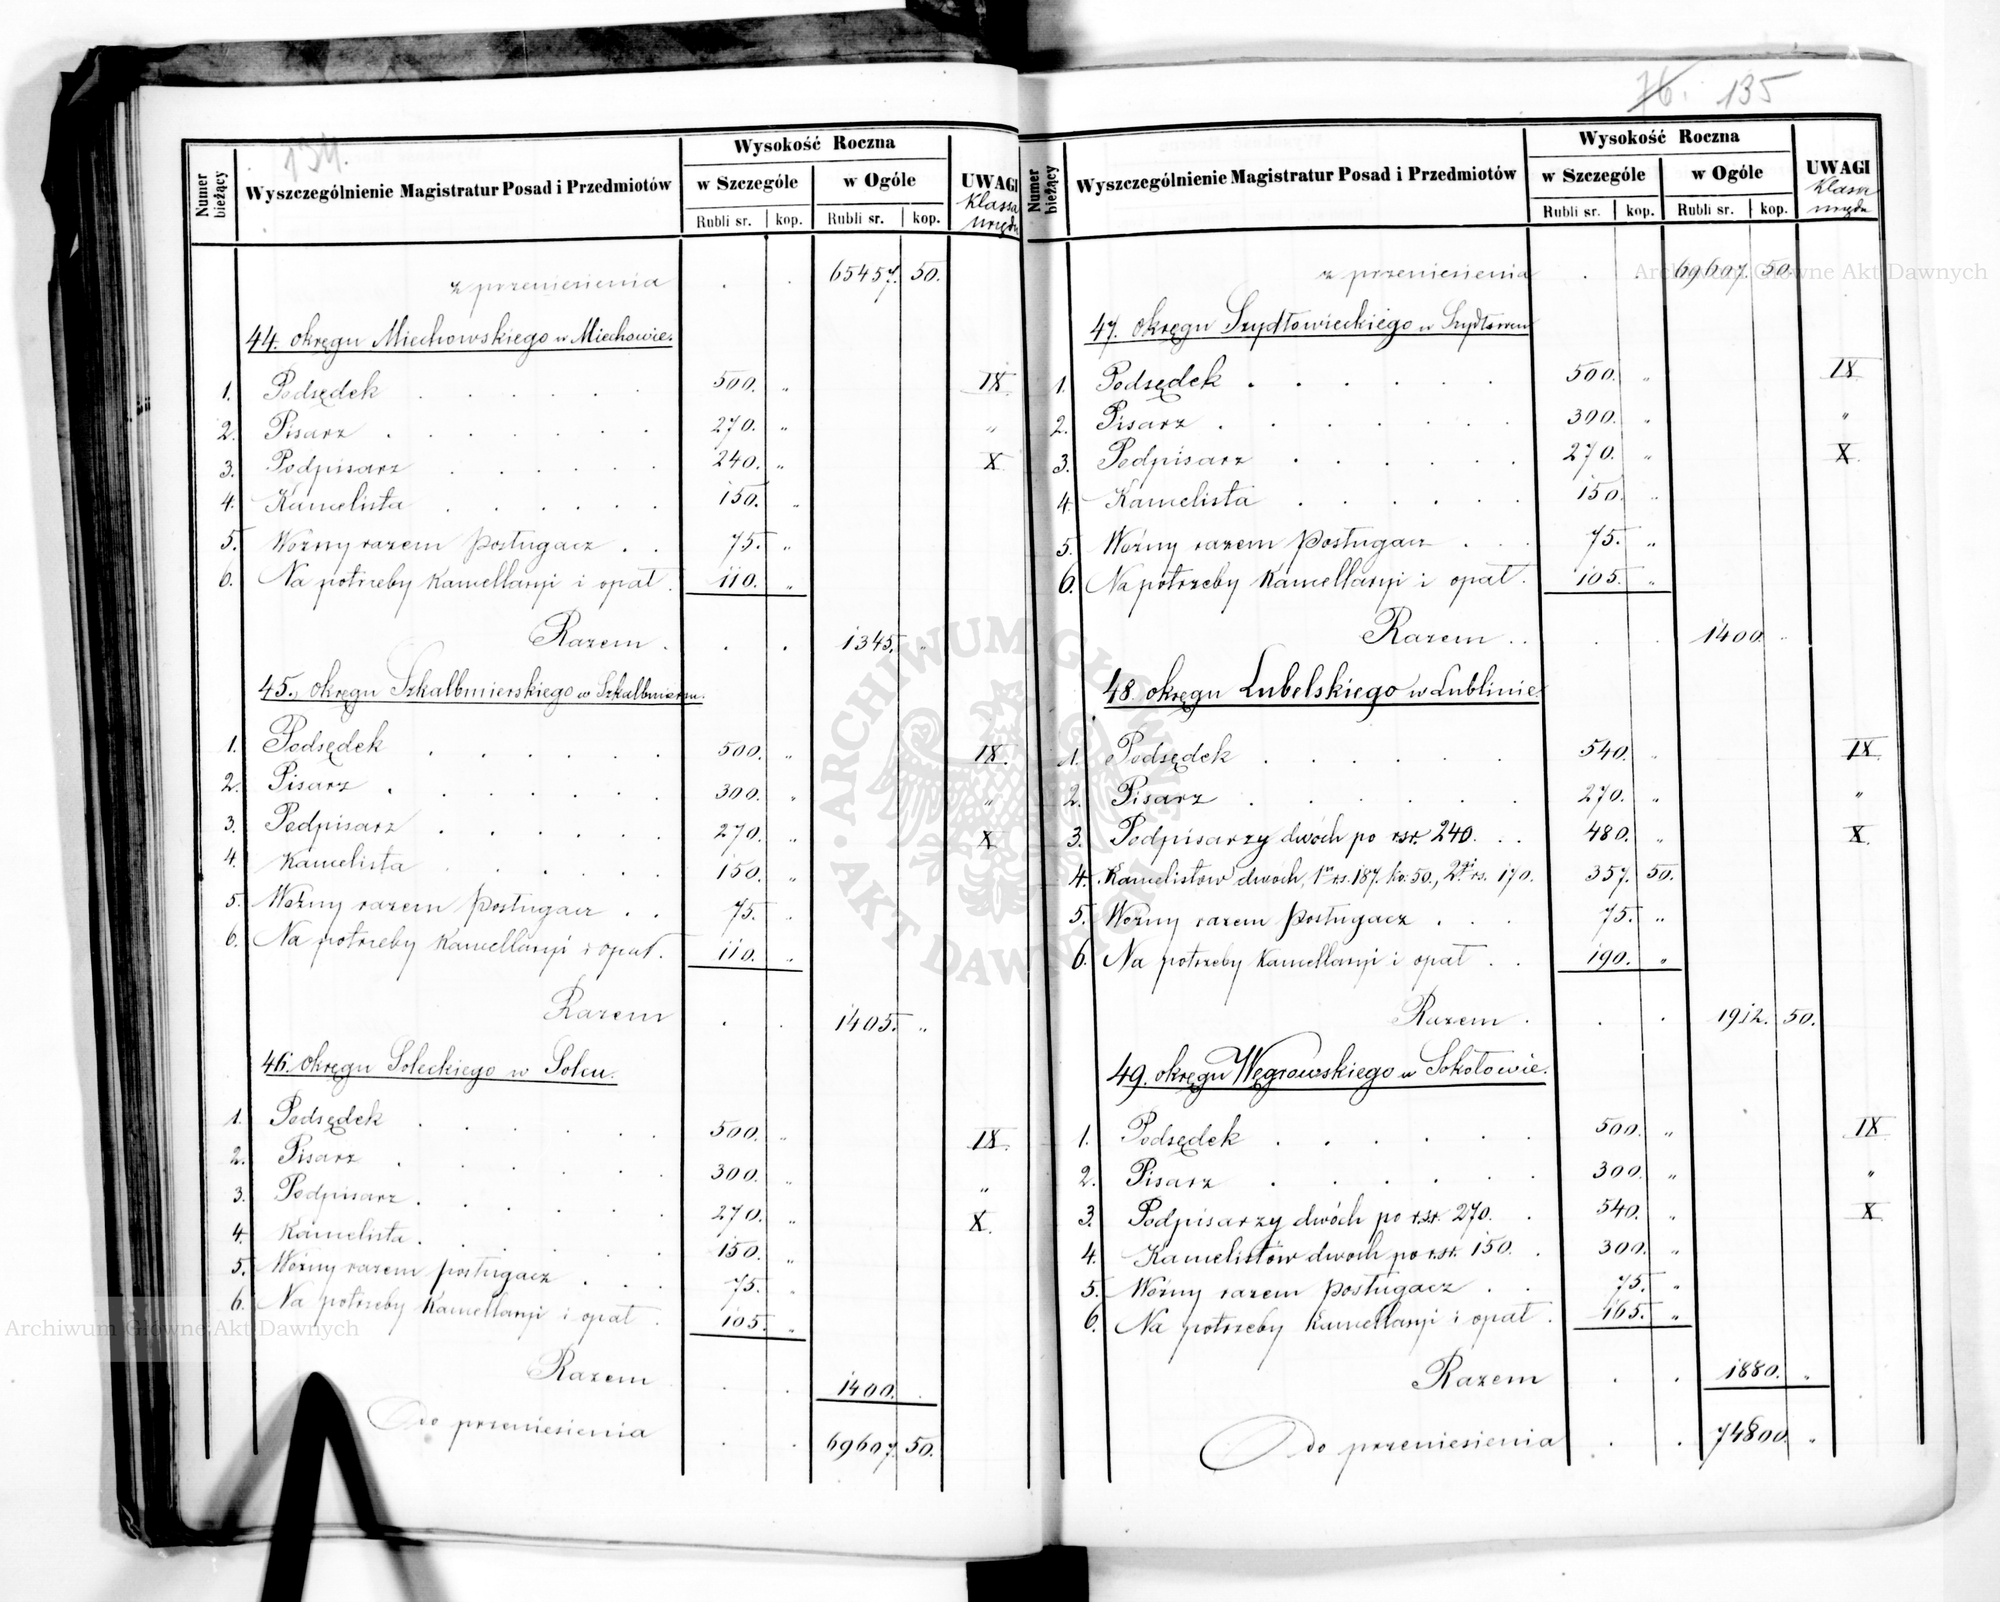 134.
Numer bieżący
Wyszczególnienie Magistratur Posad i Przedmiotów
Wysokość Roczna
w Szczególe
w Ogóle
Rubli sr. kop. Rubli sr. kop.
UWAGI
Klassa
urzędu
z przeniesienia . . 65457. 50.
44. okręgu Miechowskiego w Miechowie.
1. Podsędek . . . . . . 500. „ IX
2. Pisarz . . . . . . . 270. „ „
3. Podpisarz . . . . . . 240. „ X
4. Kancelista . . . . . . 150. „
5. Woźny razem posługacz . . 75. „
6. Na potrzeby Kancellaryi i opał . 110. „
Razem . . . 1345. „
45. okręgu Szkalbmierskiego w Szkalbmierzu.
1. Podsędek . . . . . . 500. „ IX.
2. Pisarz . . . . . . . 300. „ „
3. Podpisarz . . . . . . 270. „ X
4. Kancelista . . . . . . 150. „
5. Woźny razem posługacz . . 75. „
6. Na potrzeby Kancellaryi i opał . 110. „
Razem . . 1405. „
46. okręgu Soleckiego w Solcu.
1. Podsędek . . . . . . 500. „ IX.
2. Pisarz . . . . . . 300. „ „
3. Podpisarz . . . . . . 270. „ X.
4. Kancelista . . . . . . 150. „
5. Woźny razem posługacz . . . 75. „
6. Na potrzeby Kancellaryi i opał . 105. „
Razem . . 1400. .
Do przeniesienia . . 69607. 50.
76. 135
Numer bieżący
Wyszczególnienie Magistratur Posad i Przedmiotów
Wysokość Roczna
w Szczególe
w Ogóle
Rubli sr. kop. Rubli sr. kop.
UWAGI
Klasa
urzędu
z przeniesienia . . 69607. 50.
47. okręgu Szydłowieckiego w Szydłowcu
1. Podsędek . . . . . . 500. „ IX
2. Pisarz . . . . . . . 300. „ „
3. Podpisarz . . . . . . 270. „ X
4. Kancelista . . . . . . 150. „
5. Woźny razem posługacz . . . 75. „
6. Na potrzeby Kancellaryi i opał . 105. „
Razem . . . . 1400. „
48. okręgu Lubelskiego w Lublinie
1. Podsędek . . . . . . 540. „ IX
2. Pisarz . . . . . . 270. „ „
3. Podpisarzy dwóch po r.sr. 240. . . 480. „ X
4. Kancelistów dwóch, 1n rs. 187. ko: 50., 2gi rs. 170. 357. 50.
5. Woźny razem posługacz . . . 75. „
6. Na potrzeby Kancellaryi i opał . . 190. „
Razem . . . 1912. 50.
49. okręgu Węgrowskiego w Sokołowie.
1. Podsędek . . . . . . 500. „ IX
2. Pisarz . . . . . . 300. „ „
3. Podpisarzy dwóch po r.sr. 270. . 540. „ X
4. Kancelistów dwóch po r.sr. 150. . 300. „
5. Woźny razem posługacz . . 75. „
6. Na potrzeby Kancellaryi i opał . 165. „
Razem . . 1880. „
Do przeniesienia . . 74800. „
ARCHIWUM GŁÓWNE AKT DAWNYCH
Archiwum Główne Akt Dawnych
Archiwum Główne Akt Dawnych